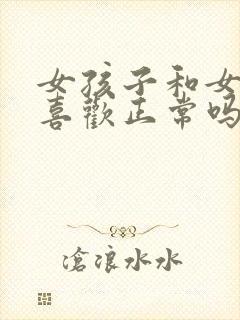 女孩子和女
喜歡正常吗
滄浪水水